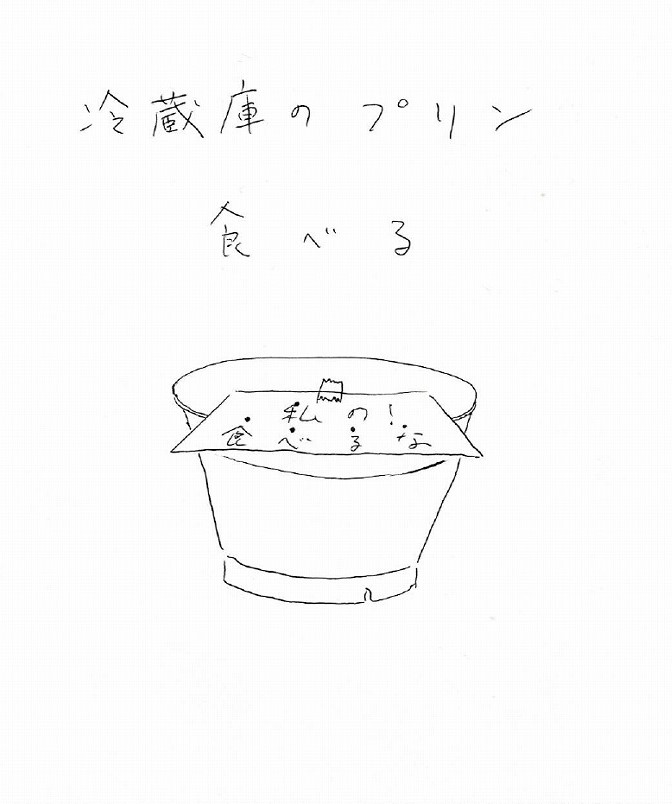 冷蔵庫のプリン
食べる
私の!
食べるな